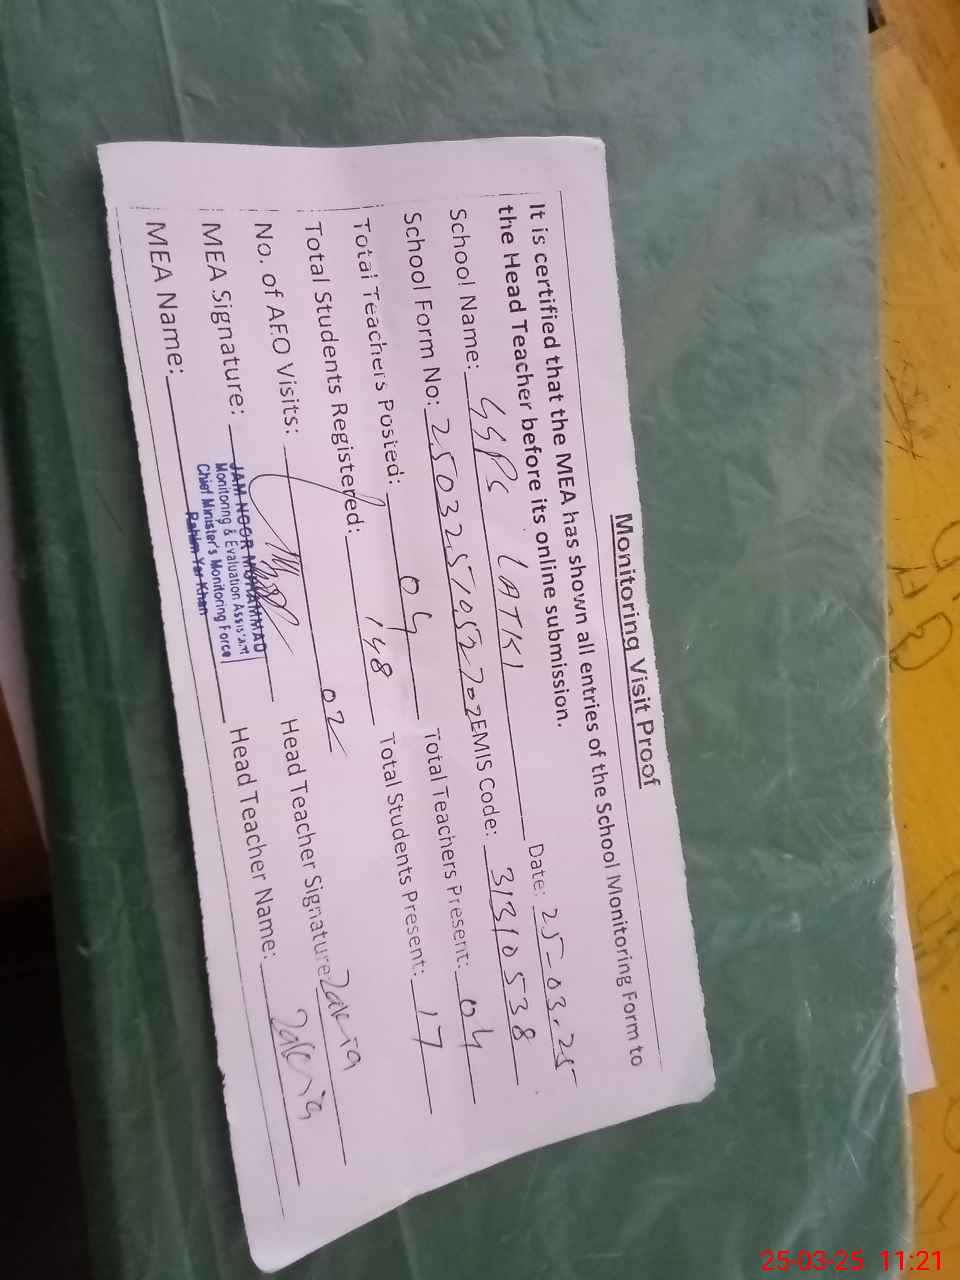 Monitoring Visit Proof
It is certified that the MEA has shown all entries of the School Monitoring Form to
the Head Teacher before its online submission.
School Name: GGPS LATKI Date: 25-03-25
School Form No: EMIS Code: 31310538
Total Teachers Posted: 04 Total Teachers Present: 04
Total Students Registered: 148 Total Students Present: 17
No. of AEO Visits: 02
MEA Signature: Head Teacher Signature: Zakia
MEA Name: Head Teacher Name: Zakia
JAM NOOR MUHAMMAD
Monitoring & Evaluation Assistant
Chief Minister's Monitoring Force
Rahim Yar Khan
25-03-25 11:21